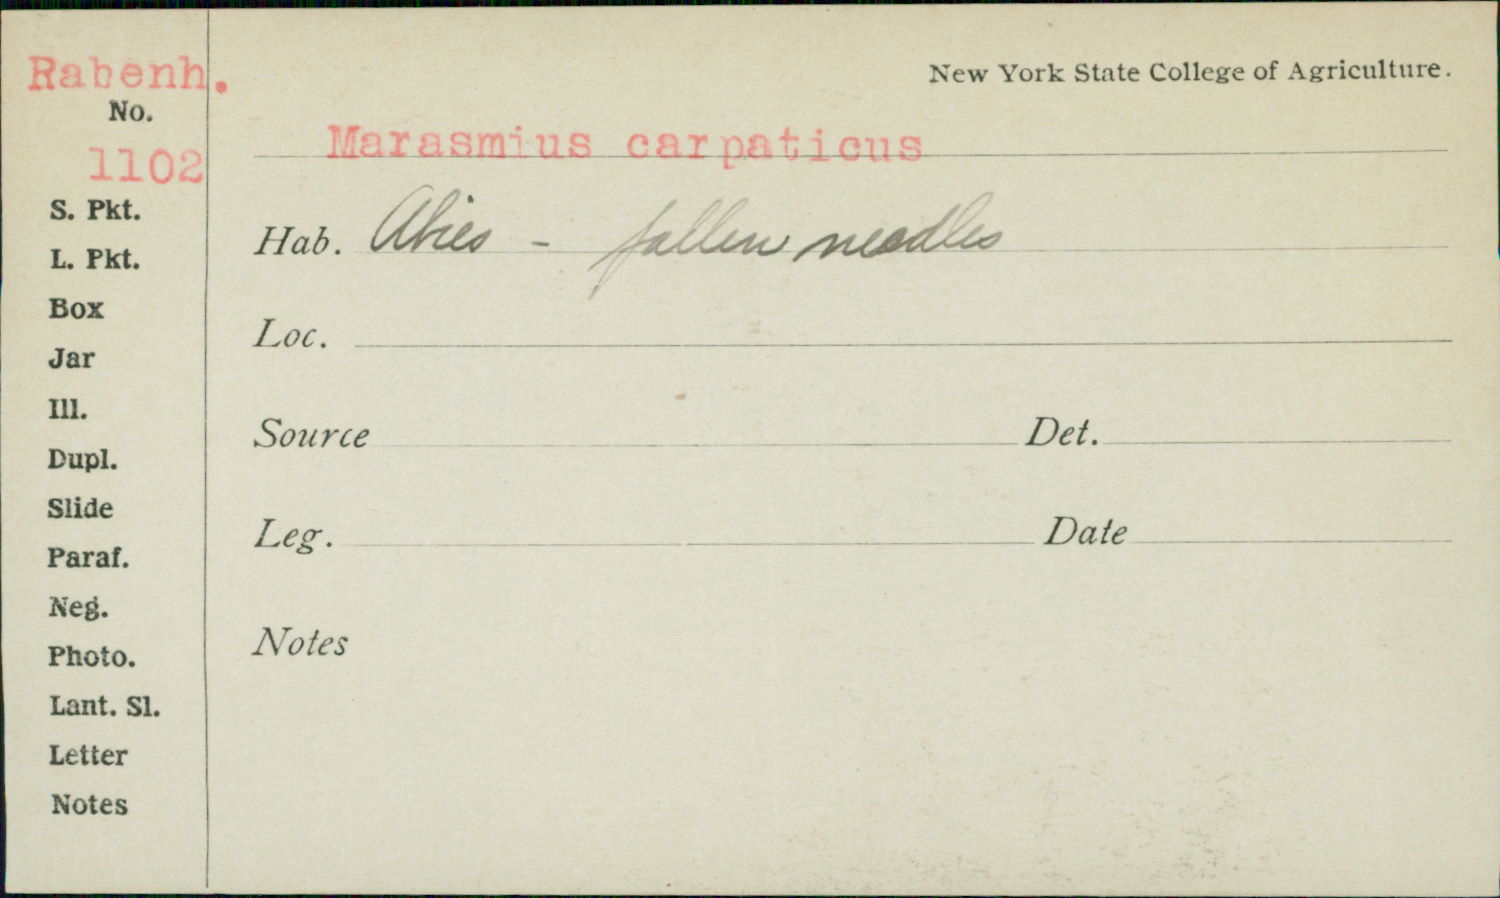 Rabenh.
No.
1102
S. Pkt.
L. Pkt.
Box
Jar
Ill.
Dupl.
Slide
Paraf.
Neg.
Photo.
Lant. Sl.
Letter
Notes
New York State College of Agriculture.
Marasmius carpaticus
Hab. Abies - fallen needles
Loc.
Source Det.
Leg. Date
Notes